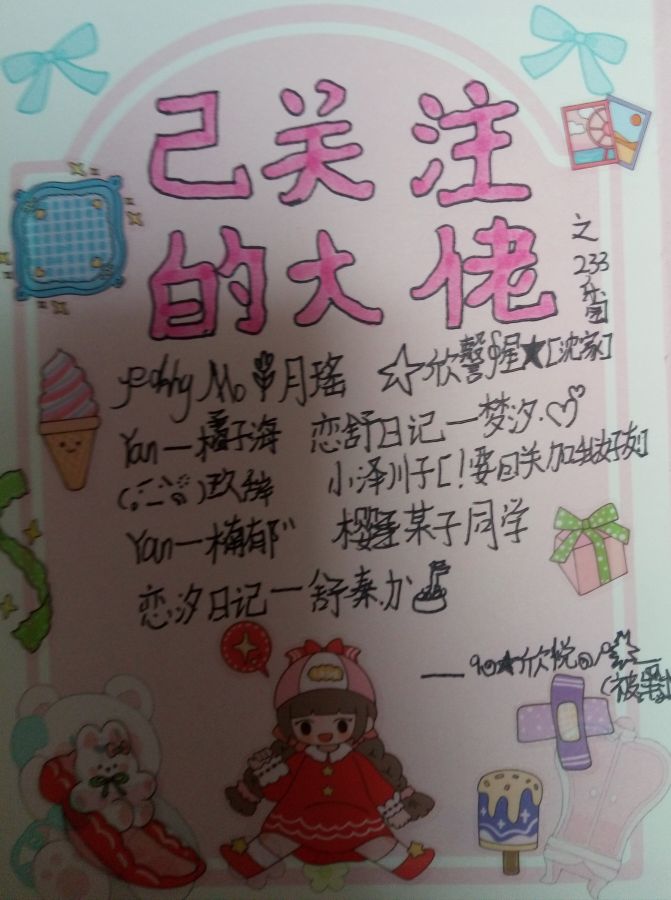 己关注
的大佬
之
233
yeohhy Mo 月瑶 ☆欣馨惺★[沈家]
Yan一橘子海 恋舒日记一梦汐.♡
玖辞 小泽川子[!要回关加我好友]
Yan一楠郁 樱 某子同学
恋汐日记一舒秦.
★欣悦